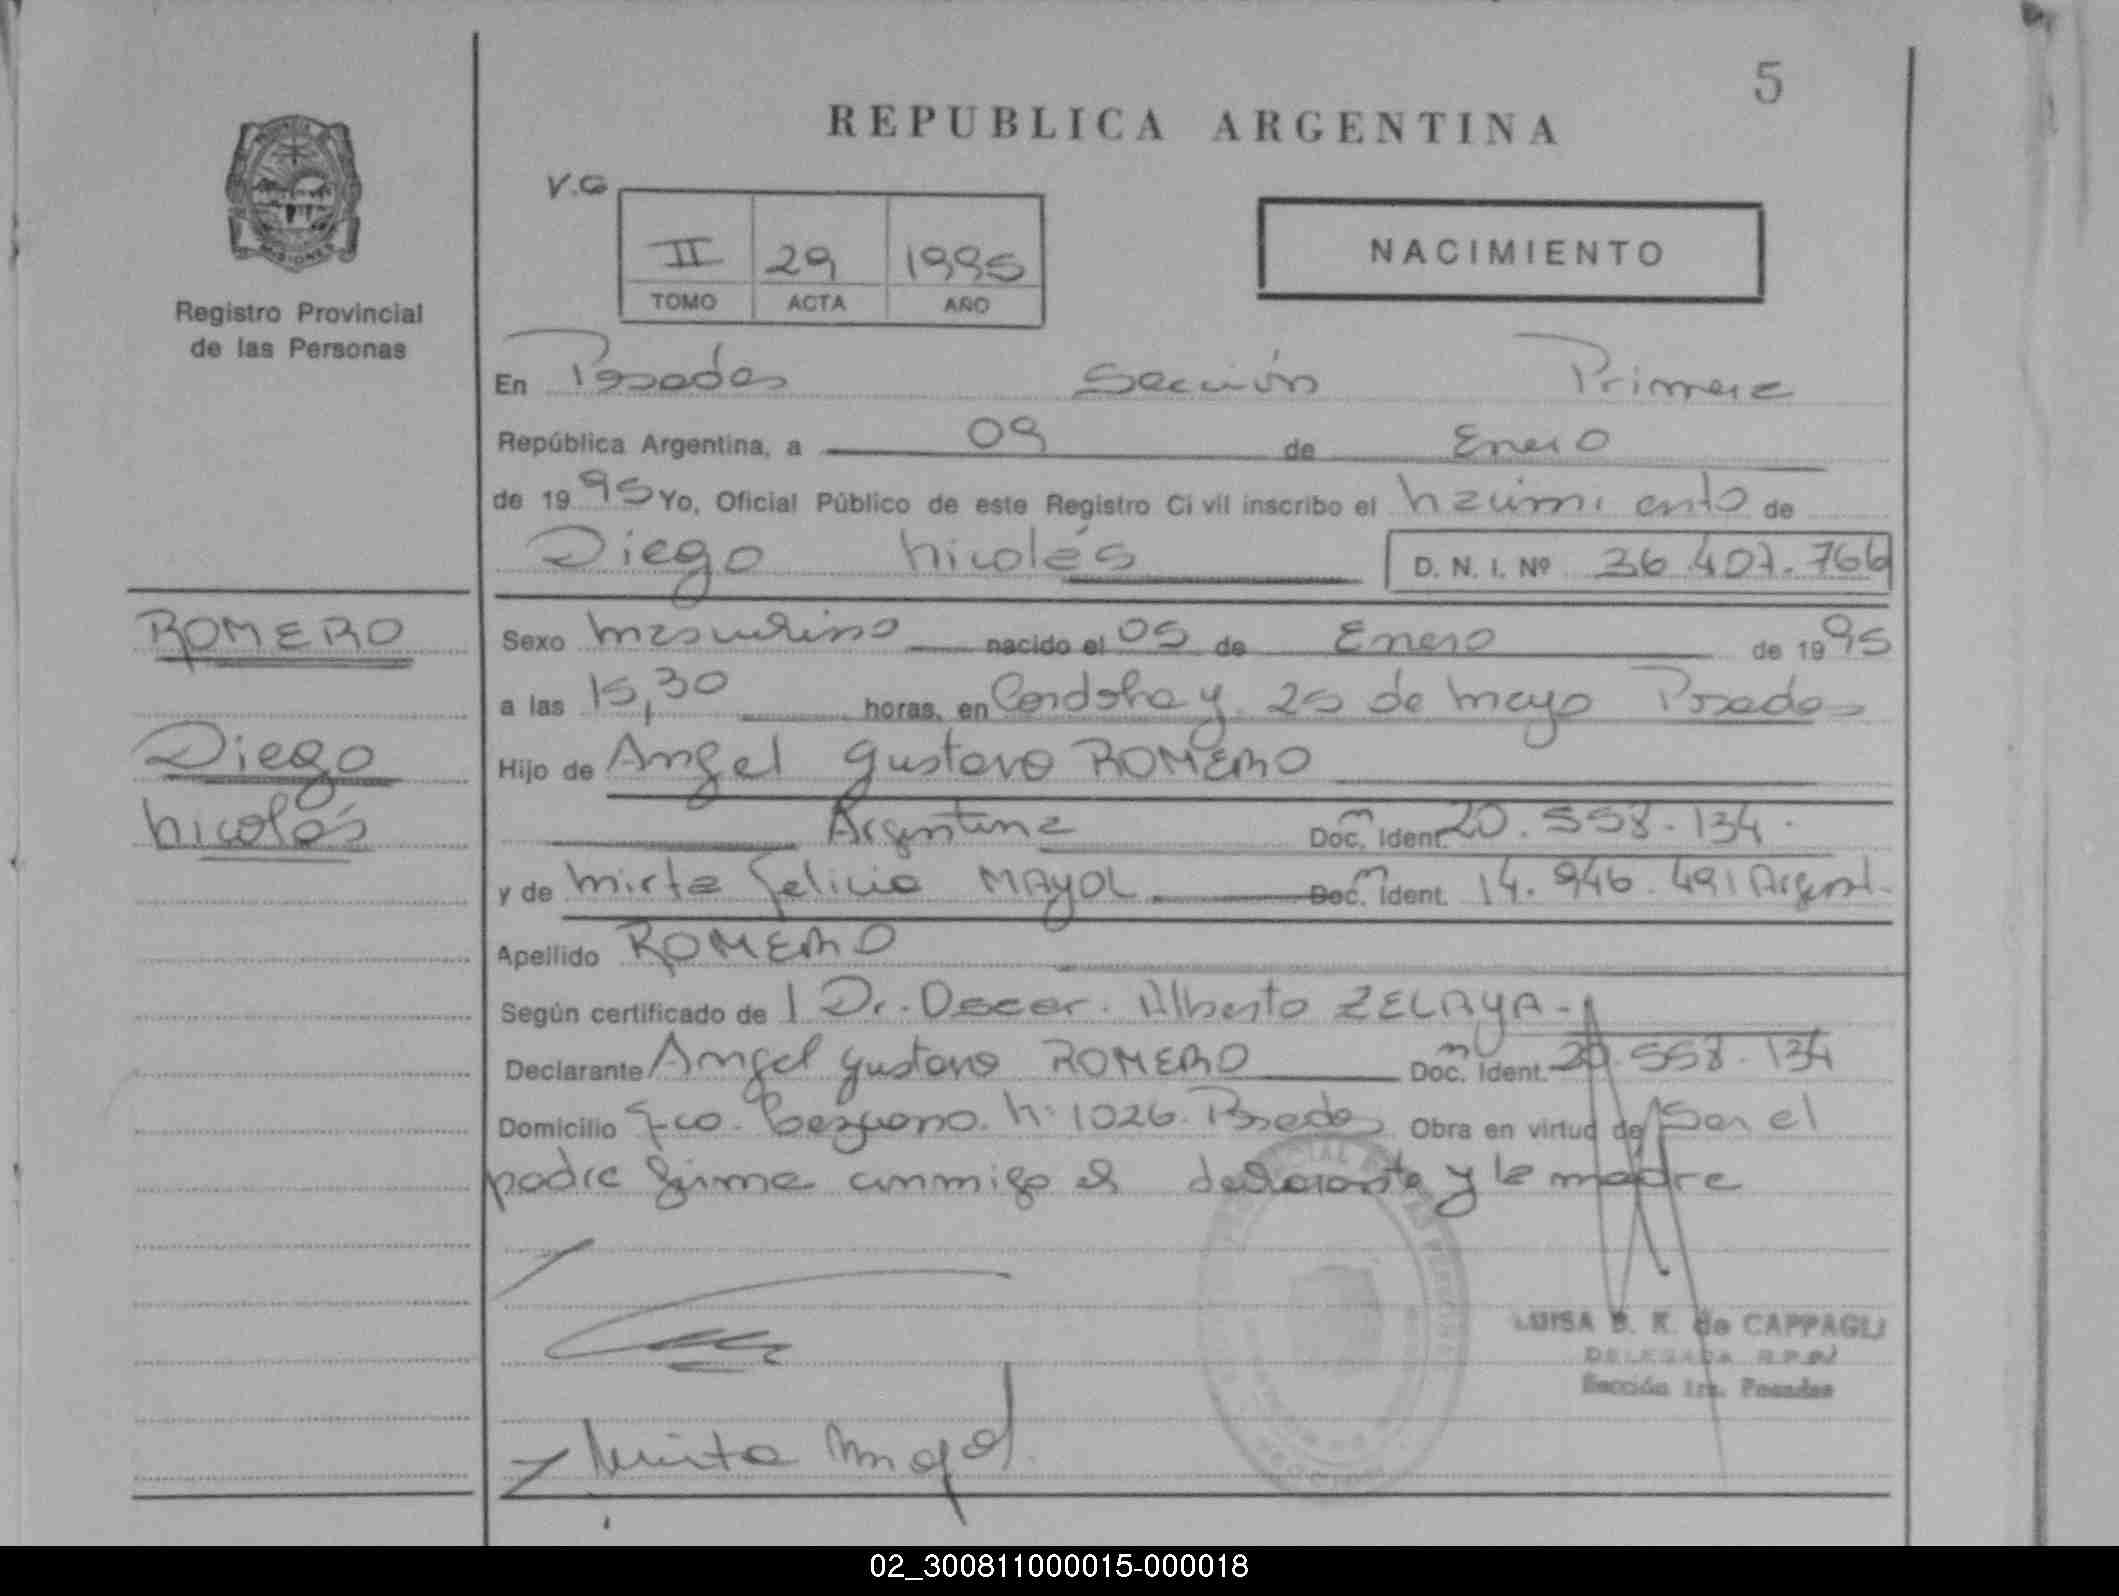 5
REPUBLICA ARGENTINA
V.G
II 29 1995
TOMO ACTA AÑO
NACIMIENTO
Registro Provincial
de las Personas
En Posadas Sección Primera
República Argentina, a 09 de Enero
de 1995 Yo, Oficial Público de este Registro Civil inscribo el nacimiento de
Diego Nicolás D. N. I. Nº 36.407.766
ROMERO
Diego
Nicolás
Sexo masculino nacido el 05 de Enero de 1995
a las 15,30 horas, en Cordoba y 25 de mayo Posadas
Hijo de Angel Gustavo ROMERO
Argentina Doc. Ident. 20.558.134.
y de Mirta Felicia MAYOL Doc. Ident. 14.946.491 Argent.
Apellido ROMERO
Según certificado de l Dr. Oscar Alberto ZELAYA.-
Declarante Angel Gustavo ROMERO Doc. Ident. 20.558.134
Domicilio Fco. Nº 1026. Posadas Obra en virtud de Ser el
padre firma conmigo el declarante y la madre
LUISA B. K. de CAPPAGLI
DELEGADA R.P.P.
Sección 1ra. Posadas
Mirta Mayol
02_300811000015-000018